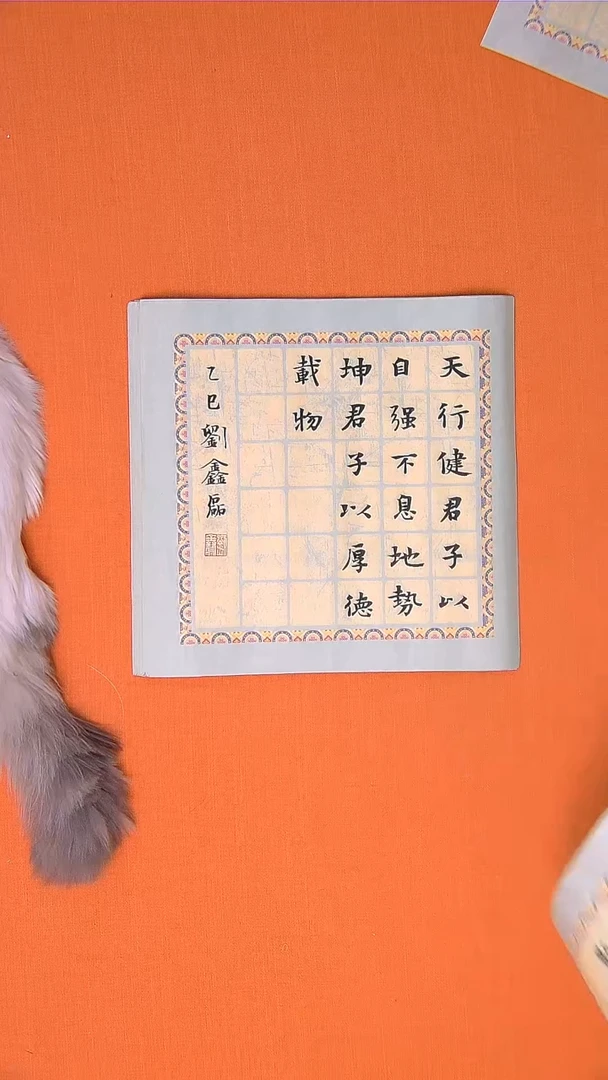 天行健君子以
自强不息地勢
坤君子以厚德
載物
乙巳劉鑫磊